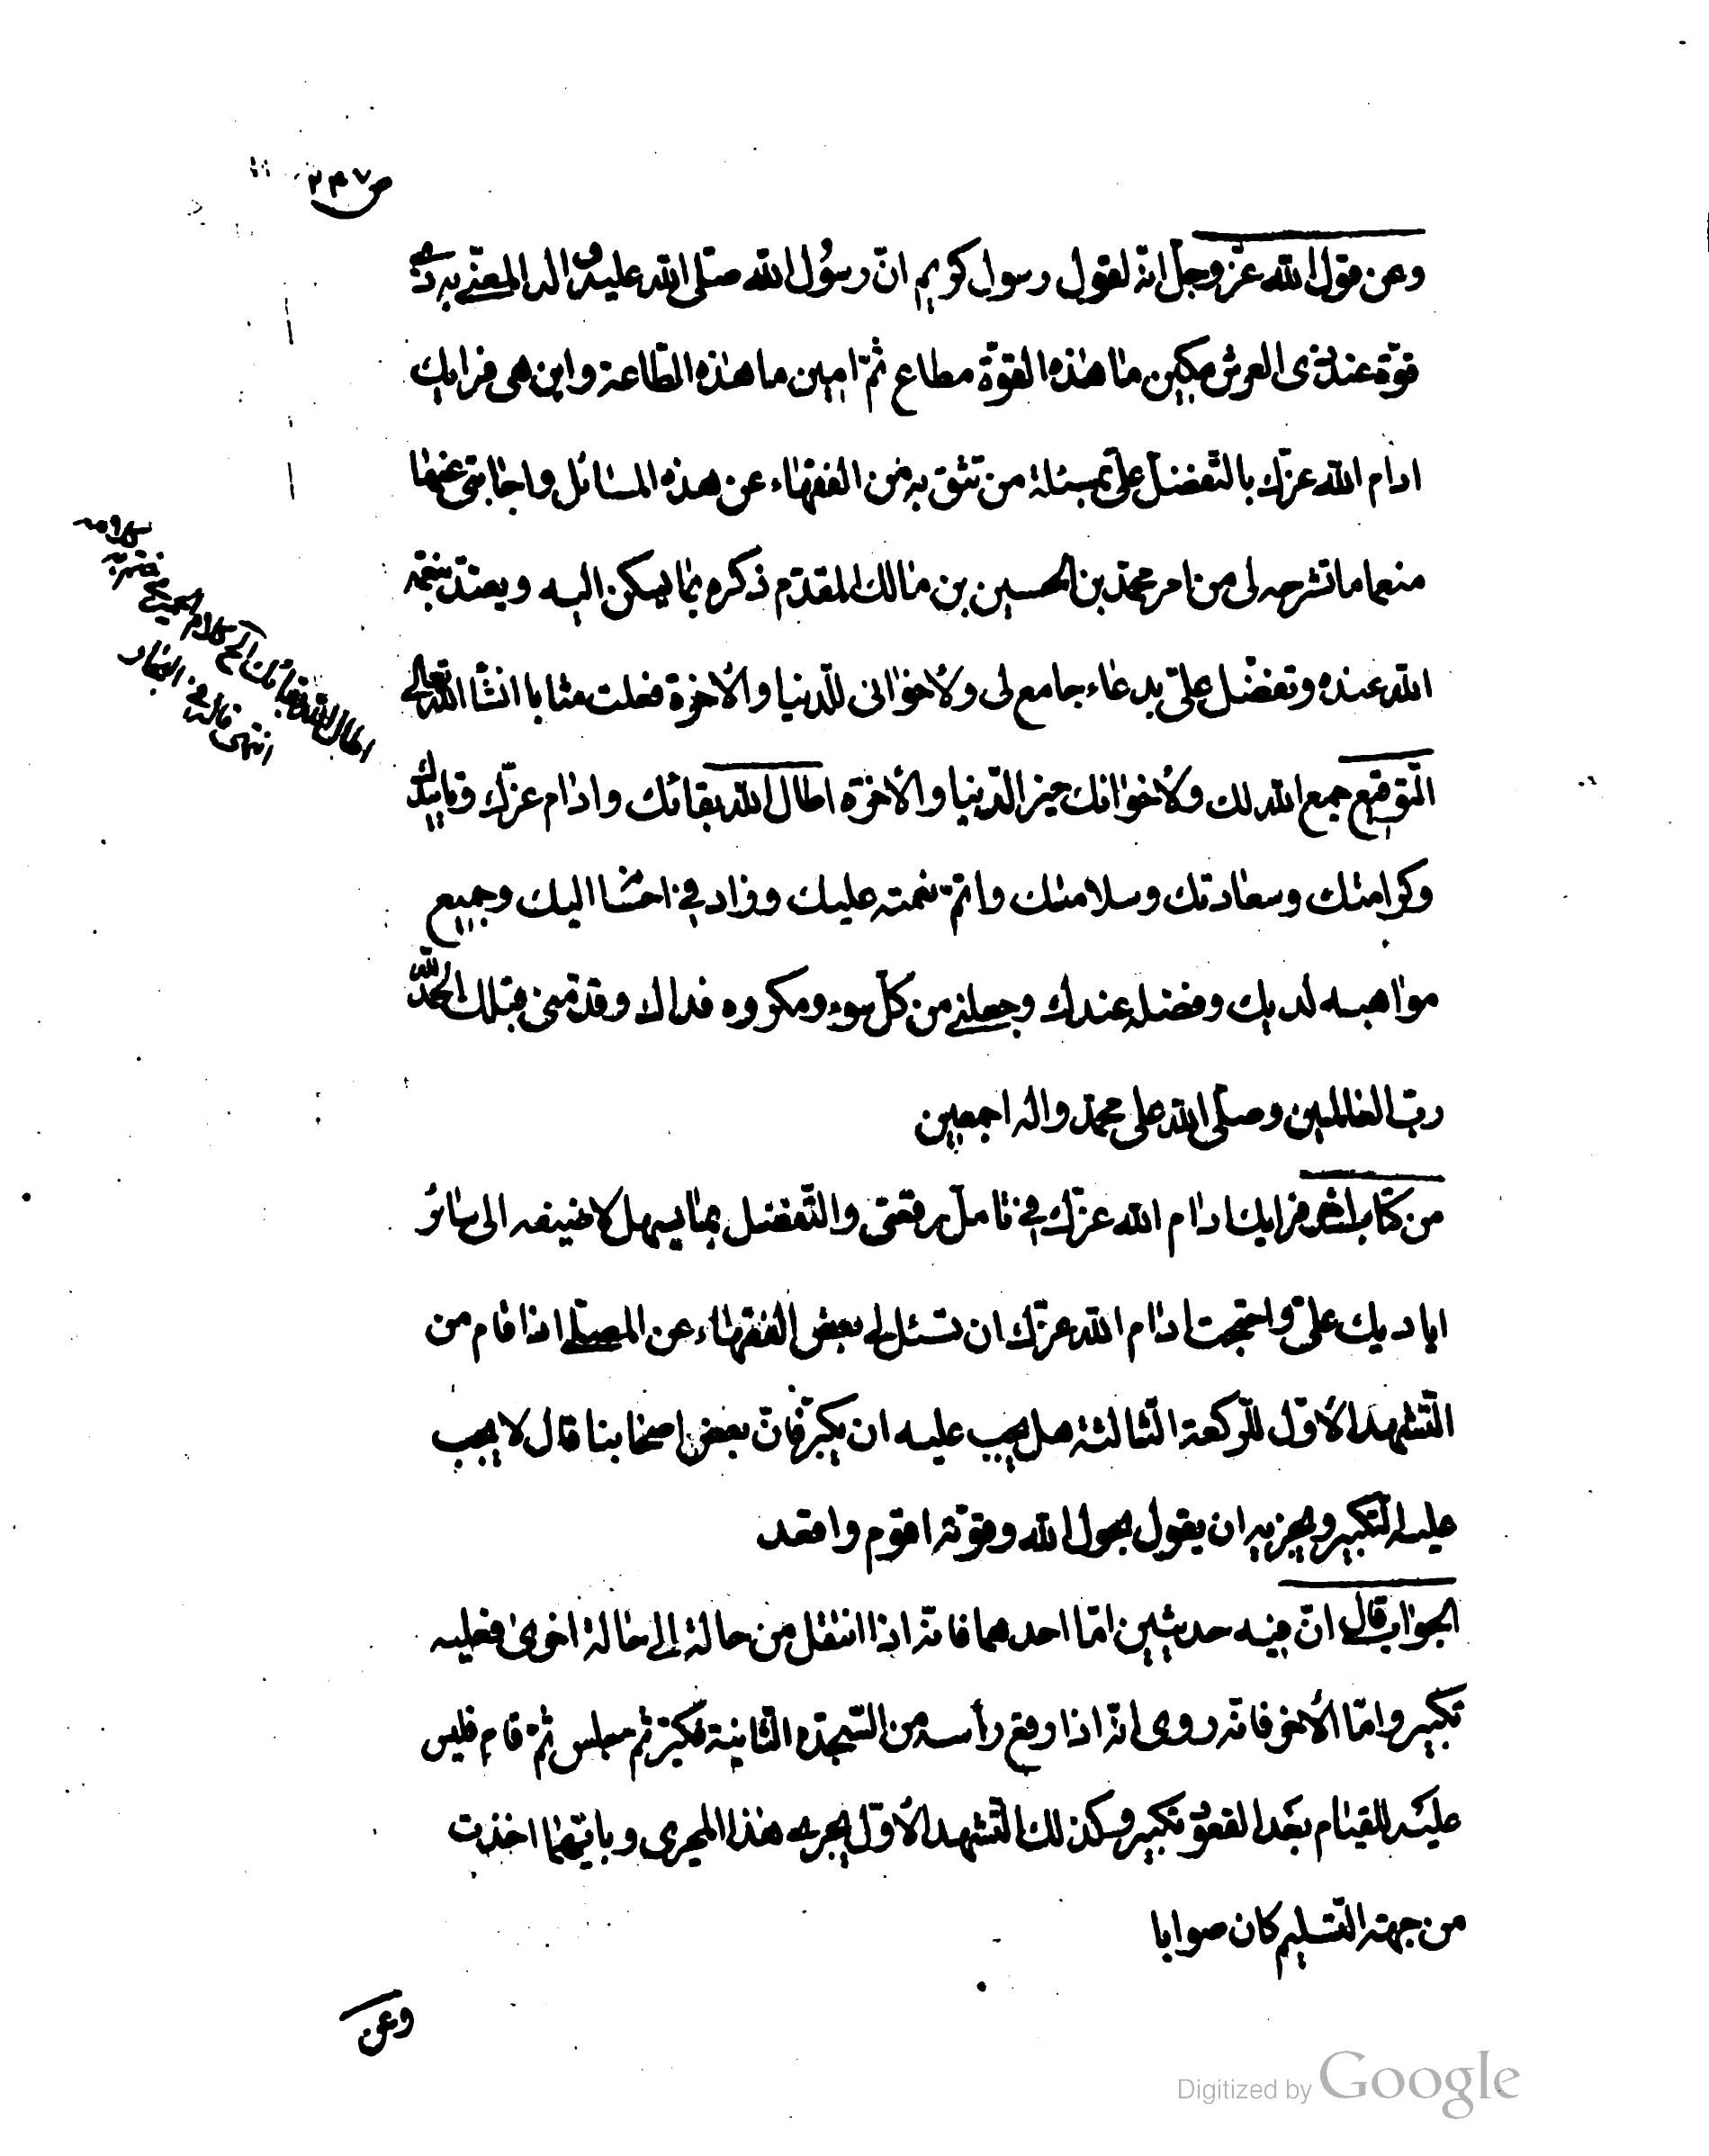 ص ٢٣٧
وعن قول الله عز وجل انّه لقول رسول كريم انّ رسُول الله صلى الله عليه واله المعنّي به ذي
قوّة عند ذى العرش مكين ما هذه القوّة مطاع ثمّ امين ما هذه الطّاعة واين هى فرايك
ادام الله عزّك بالتّفضّل علىّ بمسئلة من تثق به من الفقهاء عن هذه المسائل واجابتى عنها
منعما ما تشرحه لى من امر محمّد بن الحسين بن مالك المقدّم ذكره بما يسكن اليه ويعتدّ بنعمة
الله عنده وتفضّل علىّ بدعاء جامع لى ولأخوانى للدّنيا والأخرة فعلت مثابا انشا الله تعالى
التّوقيع جمع الله لك ولأخوانك خير الدّنيا والأخرة اطال الله بقائك وادام عزّك وتاييدك
وكرامتك وسعادتك وسلامتك واتمّ نعمته عليك وزاد في احسانه اليك وجميع
مواهبه لديك وفضله عندك وجعلني من كلّ سوء ومكروه فداك وقدّمنى قبلك الحمد لله
ربّ العالمين وصلّى الله على محمّد واله اجمعين
من كتاب اخر فرايك ادام الله عزّك في تامّل رقعتى والتّفضّل بما يسهل لاضيفه الى سائر
اياديك علىّ واحتجت ادام الله عزّك ان تسئل لي بعض الفقهاء عن المصلّي اذا قام من
التّشهد الأوّل للرّكعة الثّالثة هل يجب عليه ان يكبّر فانّ بعض اصحابنا قال لا يجب
عليه التّكبير ويجزيه ان يقول بحول الله وقوّته اقوم واقعد
الجواب قال انّ فيه حديثين امّا احدهما فانّه اذا انتقل من حالة إلى حالة اخرى فعليه
تكبير وامّا الأخر فانّه روى انّه اذا رفع رأسه من السّجدة الثّانية فكبّر ثمّ جلس ثمّ قام فليس
عليه للقيام بعد القعود تكبير وكذلك التّشهد الأوّل يجرى هذا المجرى وبايّهما اخذت
من جهة التّسليم كان صوابا
وعن
اطال الله بقائك